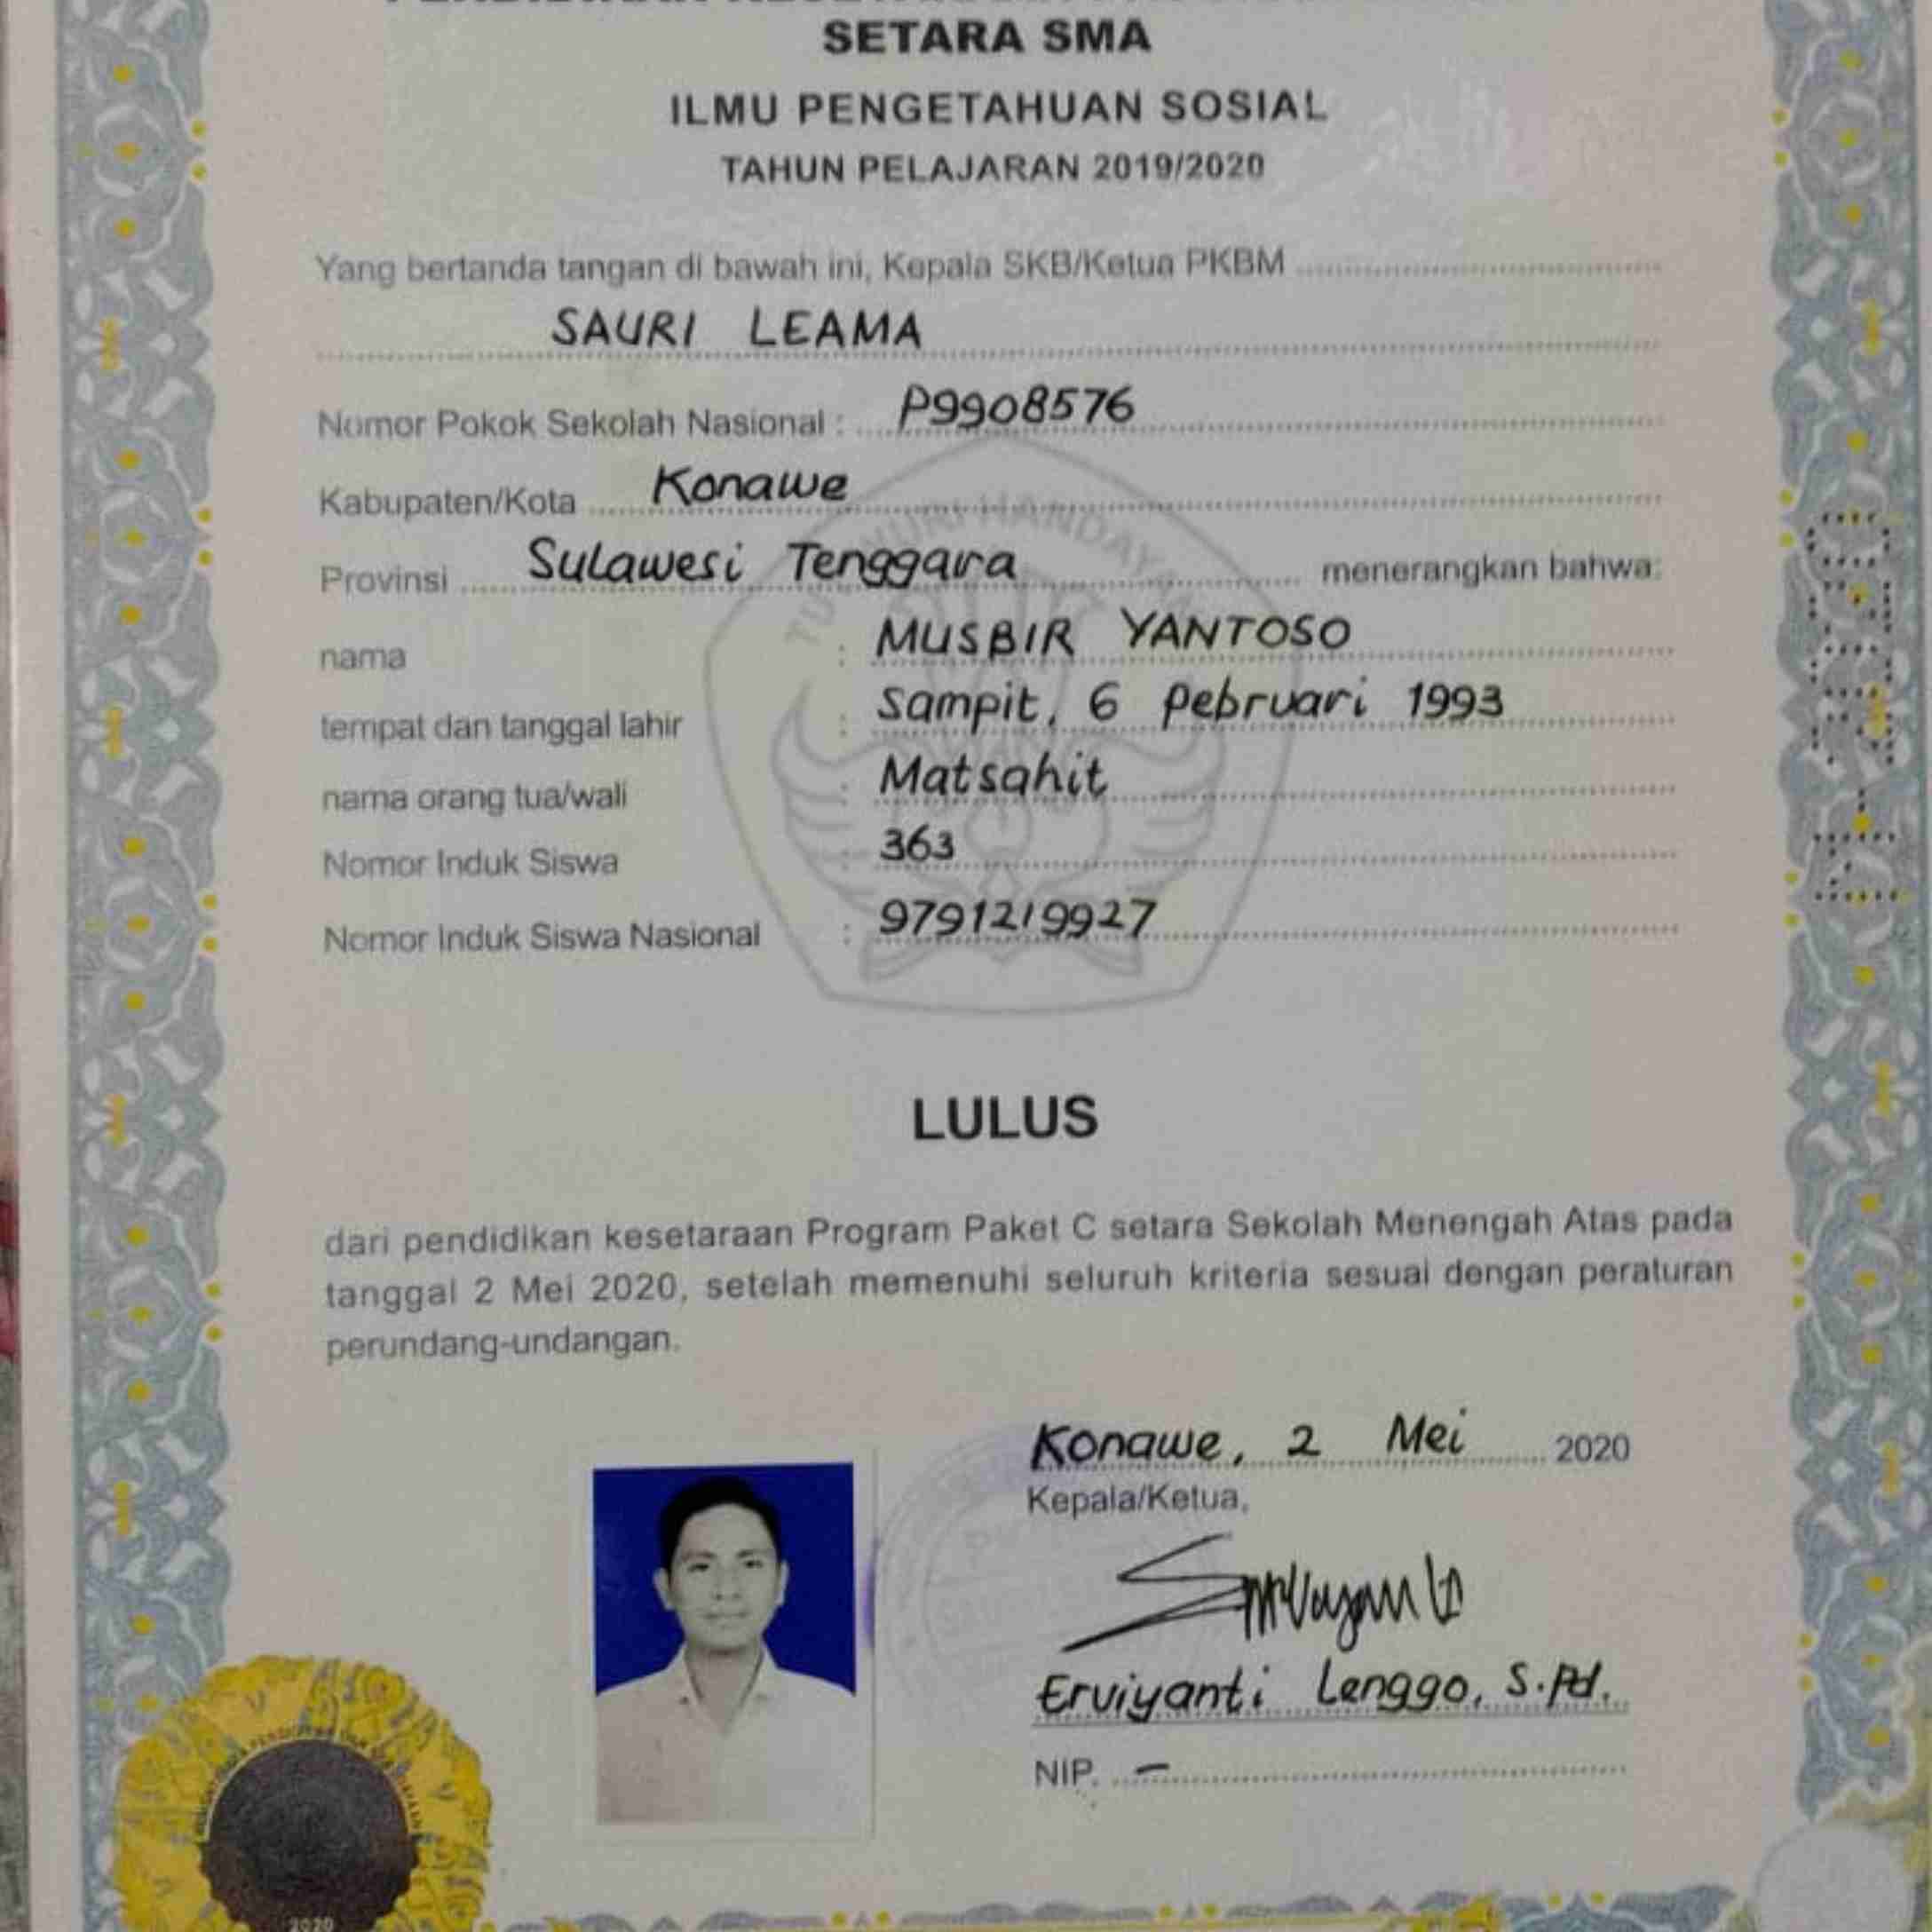 SETARA SMA
ILMU PENGETAHUAN SOSIAL
TAHUN PELAJARAN 2019/2020
Yang bertanda tangan di bawah ini, Kepala SKB/Ketua PKBM
SAURI LEAMA
Nomor Pokok Sekolah Nasional : P9908576
Kabupaten/Kota Konawe
Provinsi Sulawesi Tenggara menerangkan bahwa:
nama : MUSBIR YANTOSO
tempat dan tanggal lahir : Sampit, 6 Pebruari 1993
nama orang tua/wali : Matsahit
Nomor Induk Siswa : 363
Nomor Induk Siswa Nasional : 9791219927
LULUS
dari pendidikan kesetaraan Program Paket C setara Sekolah Menengah Atas pada
tanggal 2 Mei 2020, setelah memenuhi seluruh kriteria sesuai dengan peraturan
perundang-undangan.
Konawe, 2 Mei 2020
Kepala/Ketua,
Erviyanti Lenggo, S.Pd.
NIP. –
2020